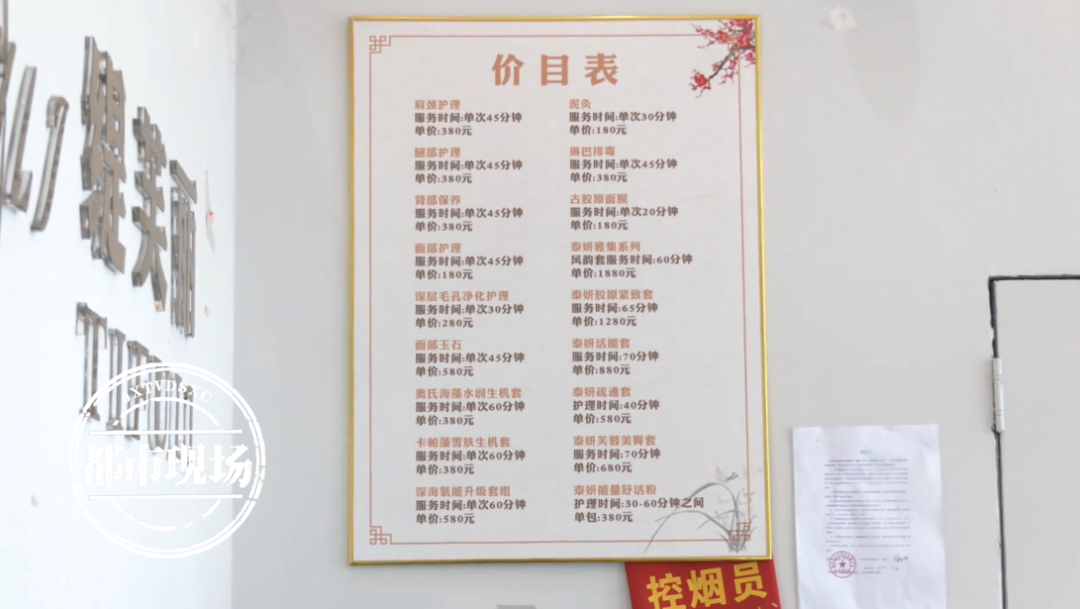 缇芙丽
XTVDSXC
都市现场
价目表
肩颈护理
服务时间:单次45分钟
单价:380元
腿部护理
服务时间:单次45分钟
单价:380元
肾部保养
服务时间:单次45分钟
单价:380元
面部护理
服务时间:单次45分钟
单价:180元
深层毛孔净化护理
服务时间:单次30分钟
单价:280元
面部玉石
服务时间:单次45分钟
单价:580元
奥氏海藻水润生机套
服务时间:单次60分钟
单价:380元
卡帕藻雪肤生机套
服务时间:单次60分钟
单价:380元
深海氧能升级套组
服务时间:单次60分钟
单价:580元
泥灸
服务时间:单次30分钟
单价:180元
淋巴排毒
服务时间:单次45分钟
单价:380元
古胶原面膜
服务时间:单次20分钟
单价:180元
泰妍雅集系列
风韵套服务时间:60分钟
单价:1880元
泰妍胶原紧致套
服务时间:65分钟
单价:1280元
泰妍活能套
服务时间:70分钟
单价:880元
泰妍疏通套
护理时间:40分钟
单价:580元
泰妍芙蓉美臀套
服务时间:70分钟
单价:680元
泰妍能量舒活粉
护理时间:30-60分钟之间
单包:380元
控烟员